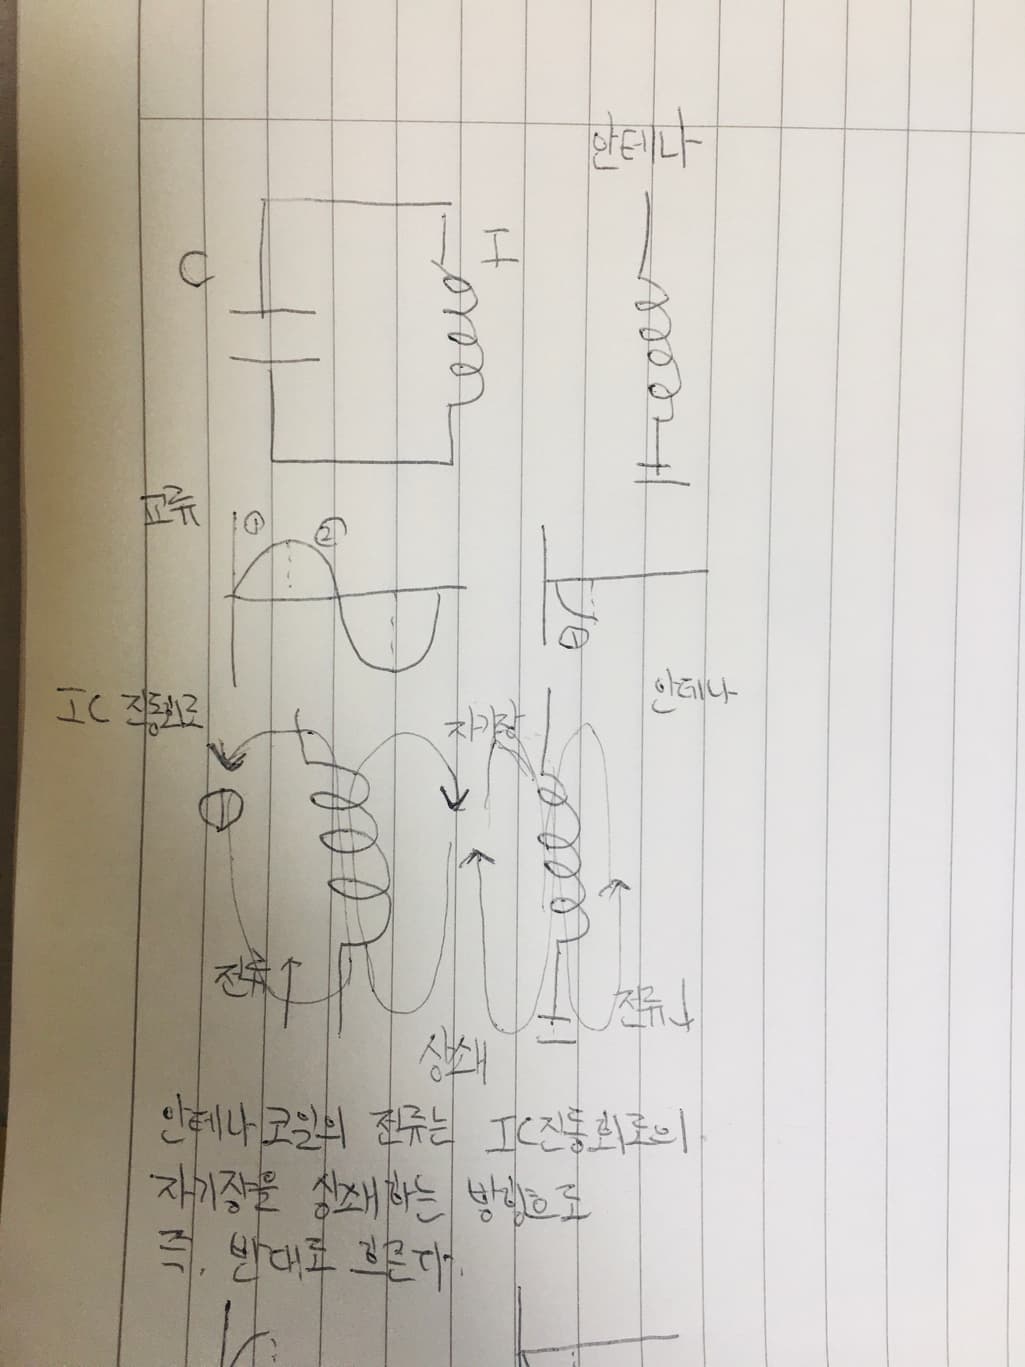 안테나
C
I
교류
①
②
㊀
IC 진동회로
자기장
안테나
전류
전류
상쇄
안테나 코일의 전류는 IC진동회로의
자기장을 상쇄하는 방향으로
즉, 반대로 흐른다.